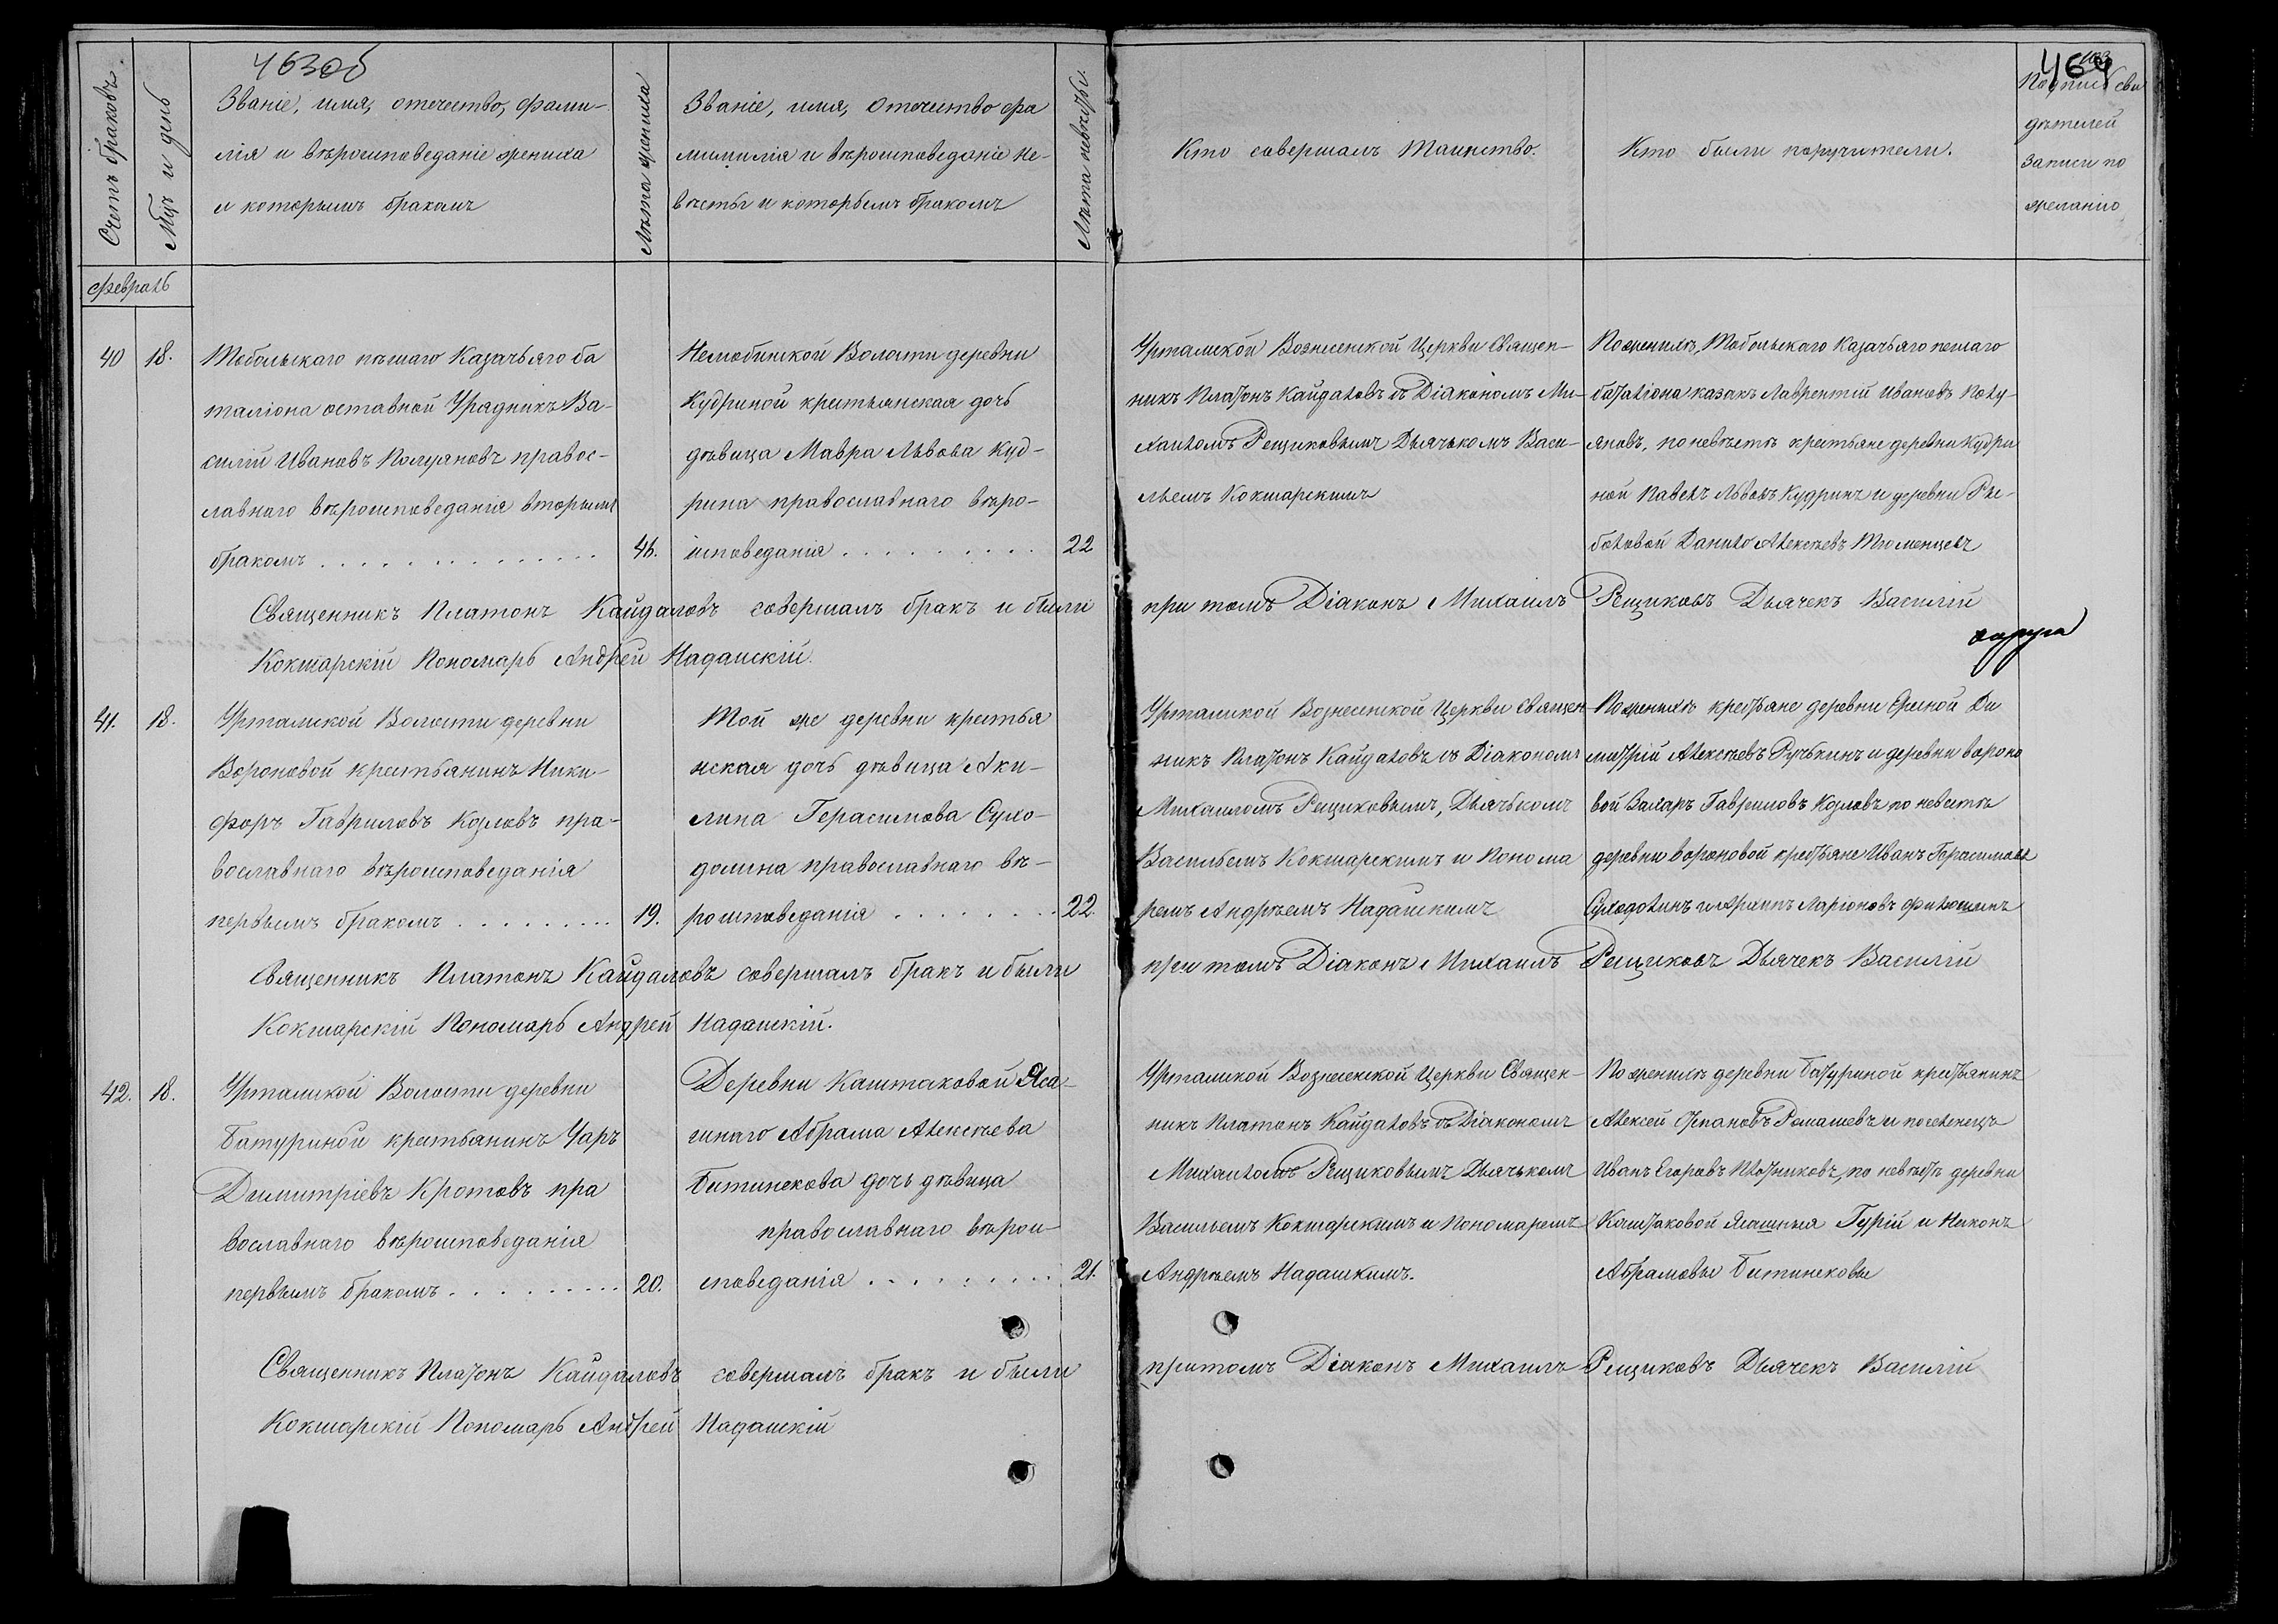 463об
464
Счетъ браковъ.
Мцъ и день
Званіе, имя, отечество, фами-
лія и вѣроисповеданіе жениха
и которымъ бракамъ
Лѣта жениха
Званіе, имя, отечество фа
милилія и вѣроисповеданіе не-
вѣсты и которымъ бракомъ
Лѣта невѣсты.
Кто совершалъ таинство.
Кто были поручители.
Подпись сви
дѣтелей
записи по
желанію
Февраль
40
18.
Тобольскаго пѣшаго Казачьяго ба
таліона оставной Урядникъ Ва-
силій Ивановъ Полуяновъ правос-
лавнаго вѣроисповеданія вторымъ
бракомъ
46.
Нелюбинской Волости деревни
Кудриной крестьянская дочь
дѣвица Мавра Львова Куд-
рина православнаго вѣро-
исповеданія
22
Урталиской Вознесенской Церкви Священ-
никъ Платонъ Кайдаловъ съ Діакономъ Ми-
хаиломъ Рещиковымъ Дьячькомъ Васи-
льемъ Кокшарскимъ
По женихѣ, Тобольскаго Казачьяго пешаго
баталіона казакъ Лаврентій Ивановъ Полу-
яновъ, по невѣстѣ крестьяне деревни Кудри
ной Павелъ Львовъ Кудринъ и деревни Ры-
баловой Данило Алексѣевъ Тюменцевъ
Священникъ Платонъ Кайдаловъ совершалъ бракъ и были при томъ Діаконъ Михаилъ Рещиковъ Дьячекъ Василій
Кокшарскій Пономарь Андрей Надашскій.
41.
18.
Урталиской Волости деревни
Вороновой крестьянинъ Ники-
форъ Гавриловъ Козловъ пра-
вославнаго вѣроисповеданія
первымъ бракомъ
19.
Той же деревни крестья
нская дочь дѣвица Аки-
лина Герасимова Сухо-
долина православнаго вѣ-
роисповеданія
22.
Урталиской Вознесенской Церкви Священ
никъ Платонъ Кайдаловъ съ Діакономъ
Михаиломъ Рещиковымъ, Дьячькомъ
Васильемъ Кокшарскимъ и Понома
ремъ Андрѣемъ Надашскимъ
По женихѣ крестьяне деревни Еловой Ди
митрій Алексѣевъ Ручькинъ и деревни вороно
вой Захаръ Гавриловъ Козловъ по невестѣ
деревни вороновой крестьяне Иванъ Герасимовъ
Суходолинъ и Архипъ Ларіоновъ
Священникъ Платонъ Кайдаловъ совершалъ бракъ и были при томъ Діаконъ Михаилъ Рещиковъ Дьячекъ Василій
Кокшарскій Пономарь Андрей Надашскій.
42.
18.
Урталиской Волости деревни
Батуриной крестьянинъ Уаръ
Димитріевъ Кротовъ пра
вославнаго вѣроисповеданія
первымъ бракомъ
20.
Деревни Каштаковой Яса-
шнаго Абрама Алексѣева
Битинекова дочь дѣвица
православнаго вѣрои-
споведанія
21.
Урталиской Вознесенской Церкви Священ-
никъ Платонъ Кайдаловъ съ Діакономъ
Михаиломъ Рещиковымъ Дьячькомъ
Васильемъ Кокшарскимъ и Пономаремъ
Андрѣемъ Надашскимъ.
По женихѣ деревни Батуриной крестьянинъ
Алексей Степановъ Ромашевъ и поселенецъ
Иванъ Егоровъ Плотниковъ, по невѣстѣ деревни
Каштаковой Ясашныя Гурій и Никонъ
Абрамовы Битинековы
Священникъ Платонъ Кайдаловъ совершалъ бракъ и были притомъ Діаконъ Михаилъ Рещиковъ Дьячекъ Василій
Кокшарскій Пономарь Андрей Надашскій